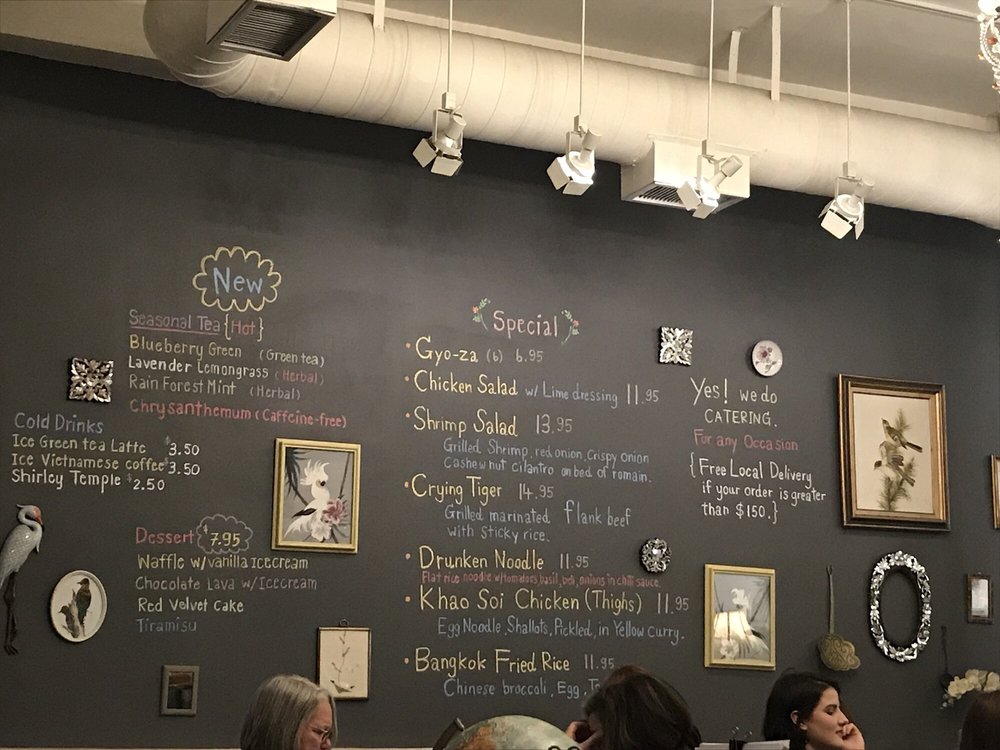 New
Seasonal Tea {Hot}
Blueberry Green (Green tea)
Lavender Lemongrass (Herbal)
Rain Forest Mint (Herbal)
Chrysanthemum (Caffeine-free)
Cold Drinks
Ice Green tea Latte $3.50
Ice Vietnamese coffee $3.50
Shirley Temple $2.50
Dessert $7.95
Waffle w/vanilla Icecream
Chocolate Lava w/Icecream
Red Velvet Cake
Tiramisu
Special
• Gyo-za (6) 6.95
• Chicken Salad w/ Lime dressing 11.95
• Shrimp Salad 13.95
Grilled Shrimp, red onion, Crispy onion
Cashew nut cilantro on bed of romain.
• Crying Tiger 14.95
Grilled marinated flank beef
with sticky rice.
• Drunken Noodle 11.95
Flat rice noodle w/tomatoes, basil, bell, onions in chili sauce.
• Khao Soi Chicken (Thighs) 11.95
Egg Noodle, Shallots, Pickled, in Yellow Curry.
• Bangkok Fried Rice 11.95
Chinese broccoli, Egg,
Yes! we do
CATERING.
For any Occasion
{Free Local Delivery
if your order is greater
than $150.}